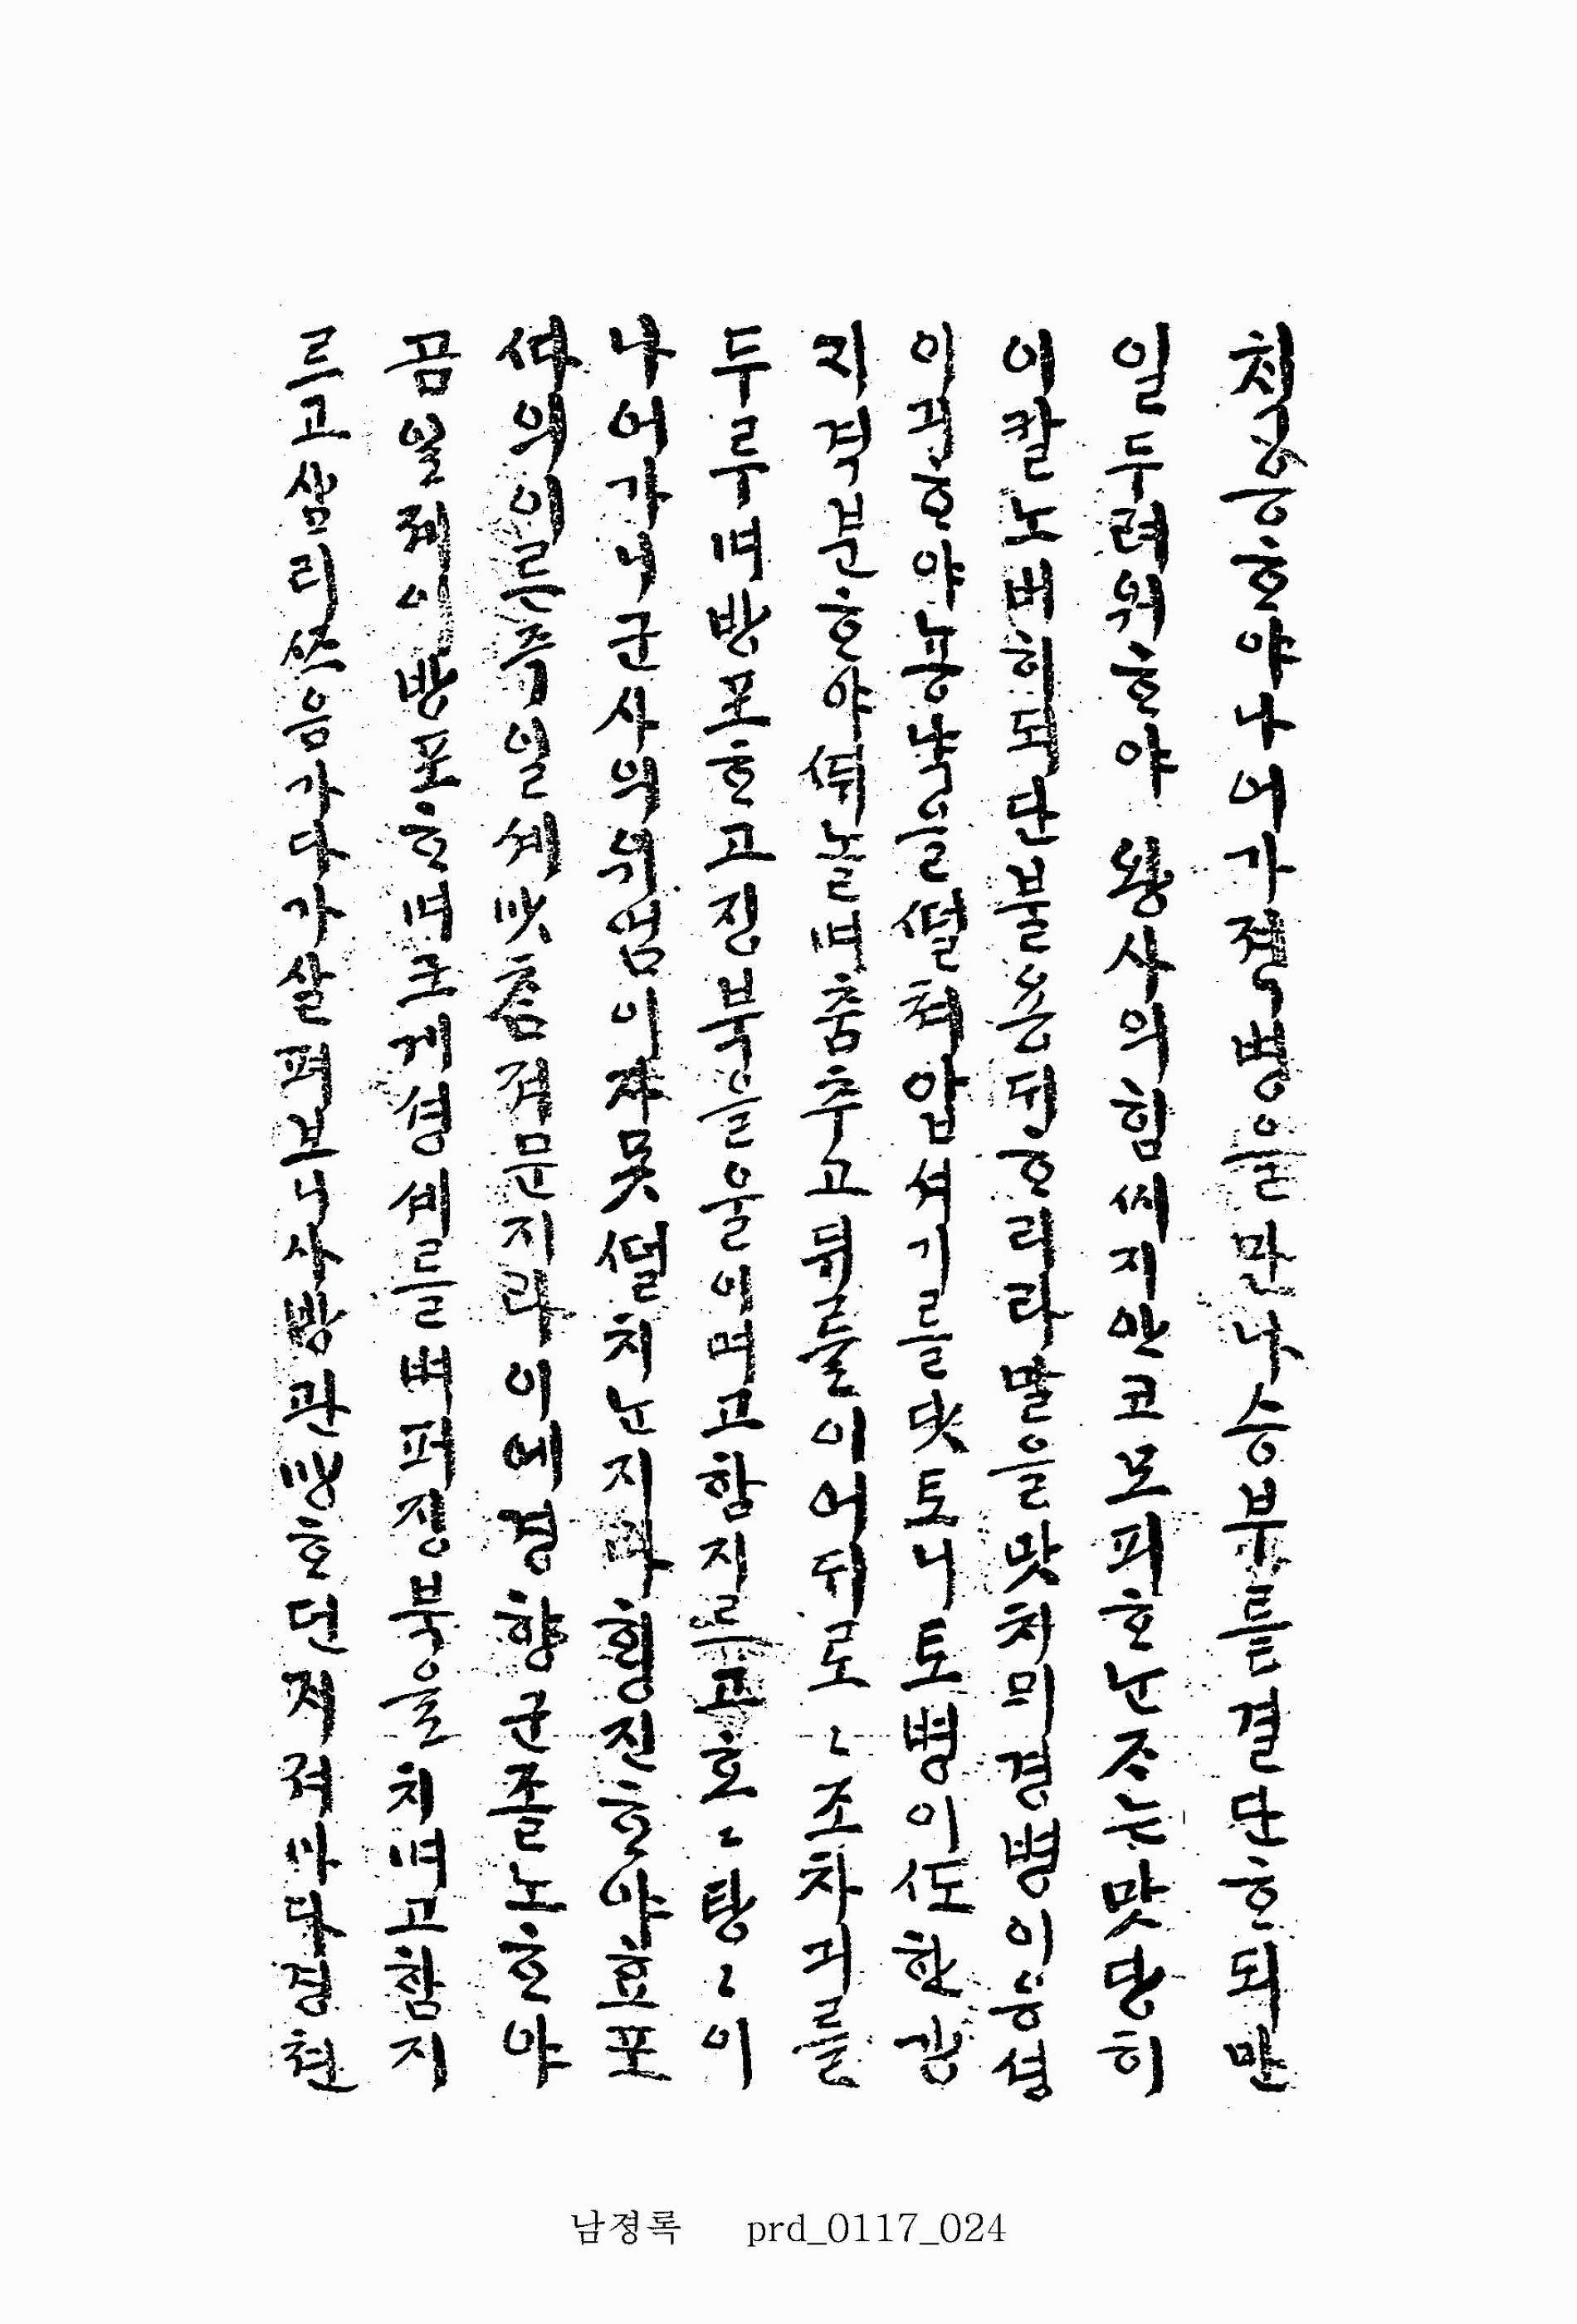 칙응ᄒᆞ야나어가젹병을만나승부를결단ᄒᆞ되만
일두려워ᄒᆞ야왕사의힘쎠지안코모피ᄒᆞᄂᆞᆫᄌᆞ는맛당히
이칼노버히되단불용ᄃᆡᄒᆞ리라말을맛치ᄆᆡ경병이응셩
이긔ᄒᆞ야뇽냑을ᄯᅥᆯ쳐압셔기를닷토니토병이ᄯᅩᄒᆞᆫ광
지격분ᄒᆞ야ᄯᅱ놀며춤추고뒤를이어뒤로〻조차긔를
두루며방포ᄒᆞ고징북을울이며고함지르고호〻탕〻이
나어가니군사의위엄이쟈못ᄯᅥᆯ치ᄂᆞᆫ지라ᄒᆡᆼ진ᄒᆞ야효포
ᄯᅡ의이른즉일셰맛ᄎᆞᆷ져문지라이에경향군졸노ᄒᆞ야
곰일졔이방포ᄒᆞ며크게셩셰를버퍼징북을치며고함지
르고삼리ᄶᅳ음가다가살펴보니사방관망ᄒᆞ던ᄌᆡ져마다경쳔
남졍록 prd_0117_024